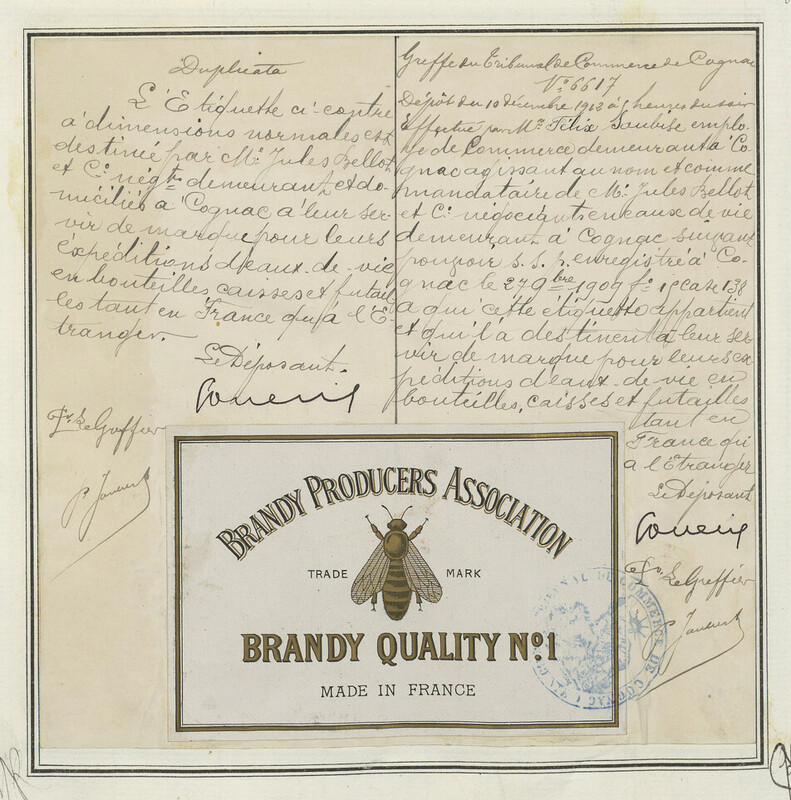 Duplicata
L'Etiquette ci-contre
à dimensions normales est
destinée par Mr. Jules Bellot
et Cie négts demeurant et do-
miciliés à Cognac à leur ser-
vir de marque pour leurs
expéditions d'eaux-de-vie
en bouteilles caisses et futail
les tant en France qu'à l'E-
tranger.
Le Déposant.
Pr. Le Greffier
Greffe du Tribunal de Commerce de Cognac
No. 6617
Dépôt du 10 décembre 1912 à heures du soir
Effectué par Mr. Félix Soubise emplo-
yé de Commerce demeurant à Co-
gnac agissant au nom et comme
mandataire de Mr. Jules Bellot
et Cie négociants en eaux de vie
demeurant à Cognac suivant
pouvoir s.s.p. enregistré à Co-
gnac le 27 9bre 1909 fo. 15 case 138
à qui cette étiquette appartient
et qui l'a destinent à leur ser-
vir de marque pour leurs ex-
péditions d'eaux-de-vie en
bouteilles, caisses et futailles
tant en
France qu'
à l'Etranger
Le Déposant
Pr. Le Greffier
BRANDY PRODUCERS ASSOCIATION
TRADE MARK
BRANDY QUALITY No. 1
MADE IN FRANCE
TRIBUNAL DE COMMERCE DE COGNAC